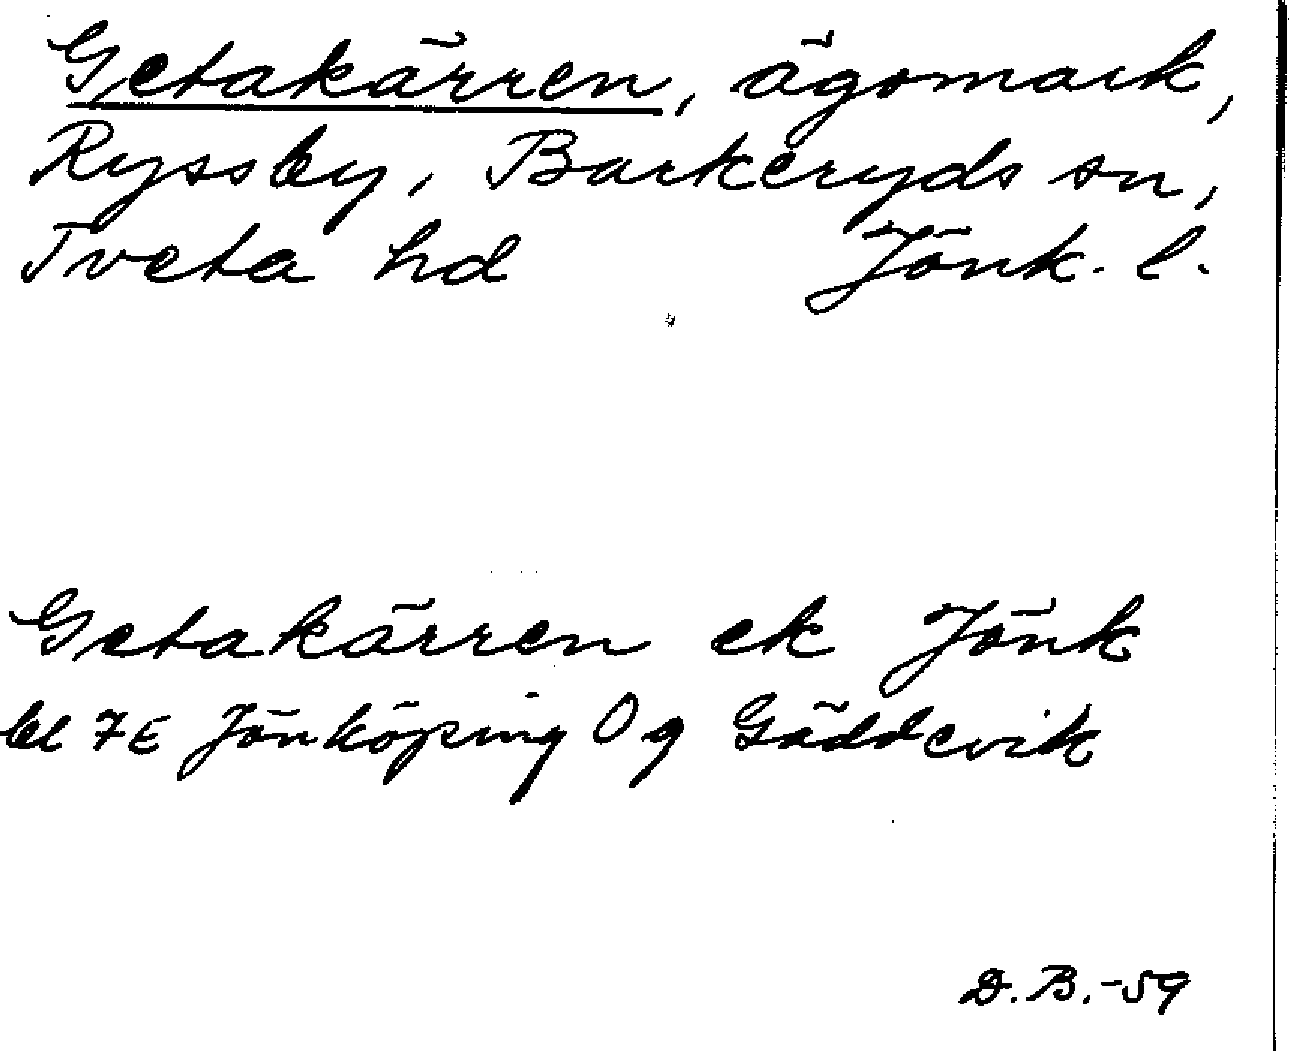 Getakärren, ägomark,
Ryssby, Barkeryds sn,
Tveta hd Jönk. l.
Getakärren ek Jönk
bl 7E Jönköping 0g Gäddevik
D.B.-59